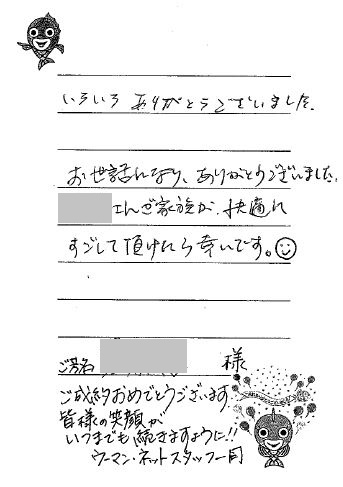 いろいろ ありがとうございました.
お世話になり、ありがとうございました。
さんご家族が、快適に
すごして頂けたら幸いです。
ご芳名 様
ご成約おめでとうございます
皆様の笑顔が
いつまでも続きますように!!
ウーマン・ネットスタッフ一同